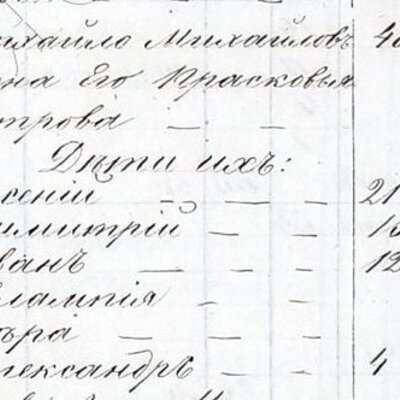 ихайло Михайловъ 40
на Его Прасковья
трова
Дѣти ихъ:
сеній 21
имитрій 15
ванъ 12
лампія
ѣра
лександръ 4